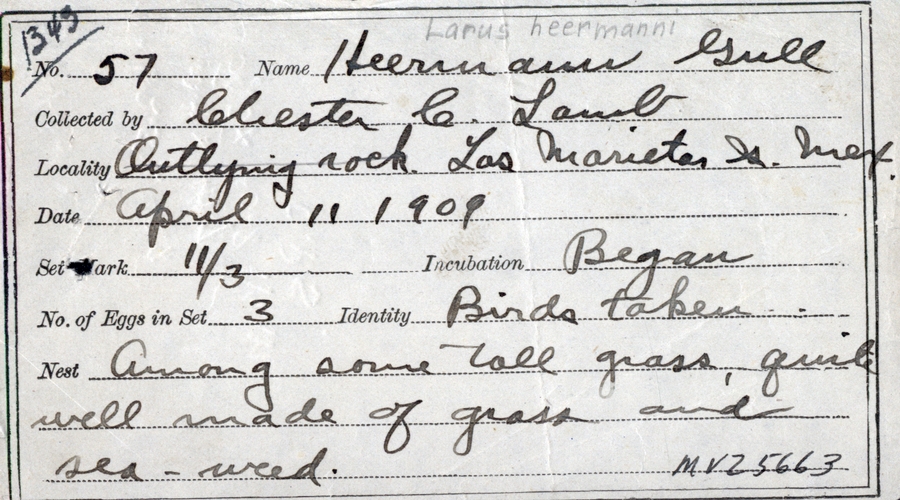 1343
Larus heermanni
No. 57 Name Heermann Gull
Collected by Chester C. Lamb
Locality Outlying rock. Las Marietas Is. Mex.
Date April 11 1909
Set Mark 11/3 Incubation Began
No. of Eggs in Set 3 Identity Birds taken
Nest Among some tall grass, quite
well made of grass and
sea-weed.
MVZ 5663